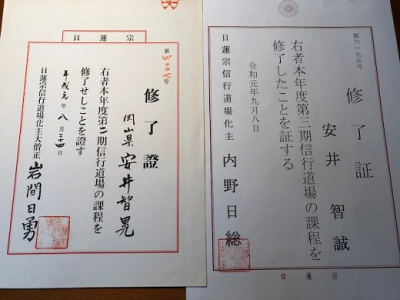 日蓮宗
修了證
岡山県 安井智晃
右者本年度第二期信行道場の課程を
修了せしことを證す
平成元年八月 日
日蓮宗信行道場化主大僧正 岩間日勇
第六一九五号
修了証
安井智誠
右者本年度第三期信行道場の課程を
修了したことを証する
令和元年九月八日
日蓮宗信行道場化主 内野日総
日蓮宗